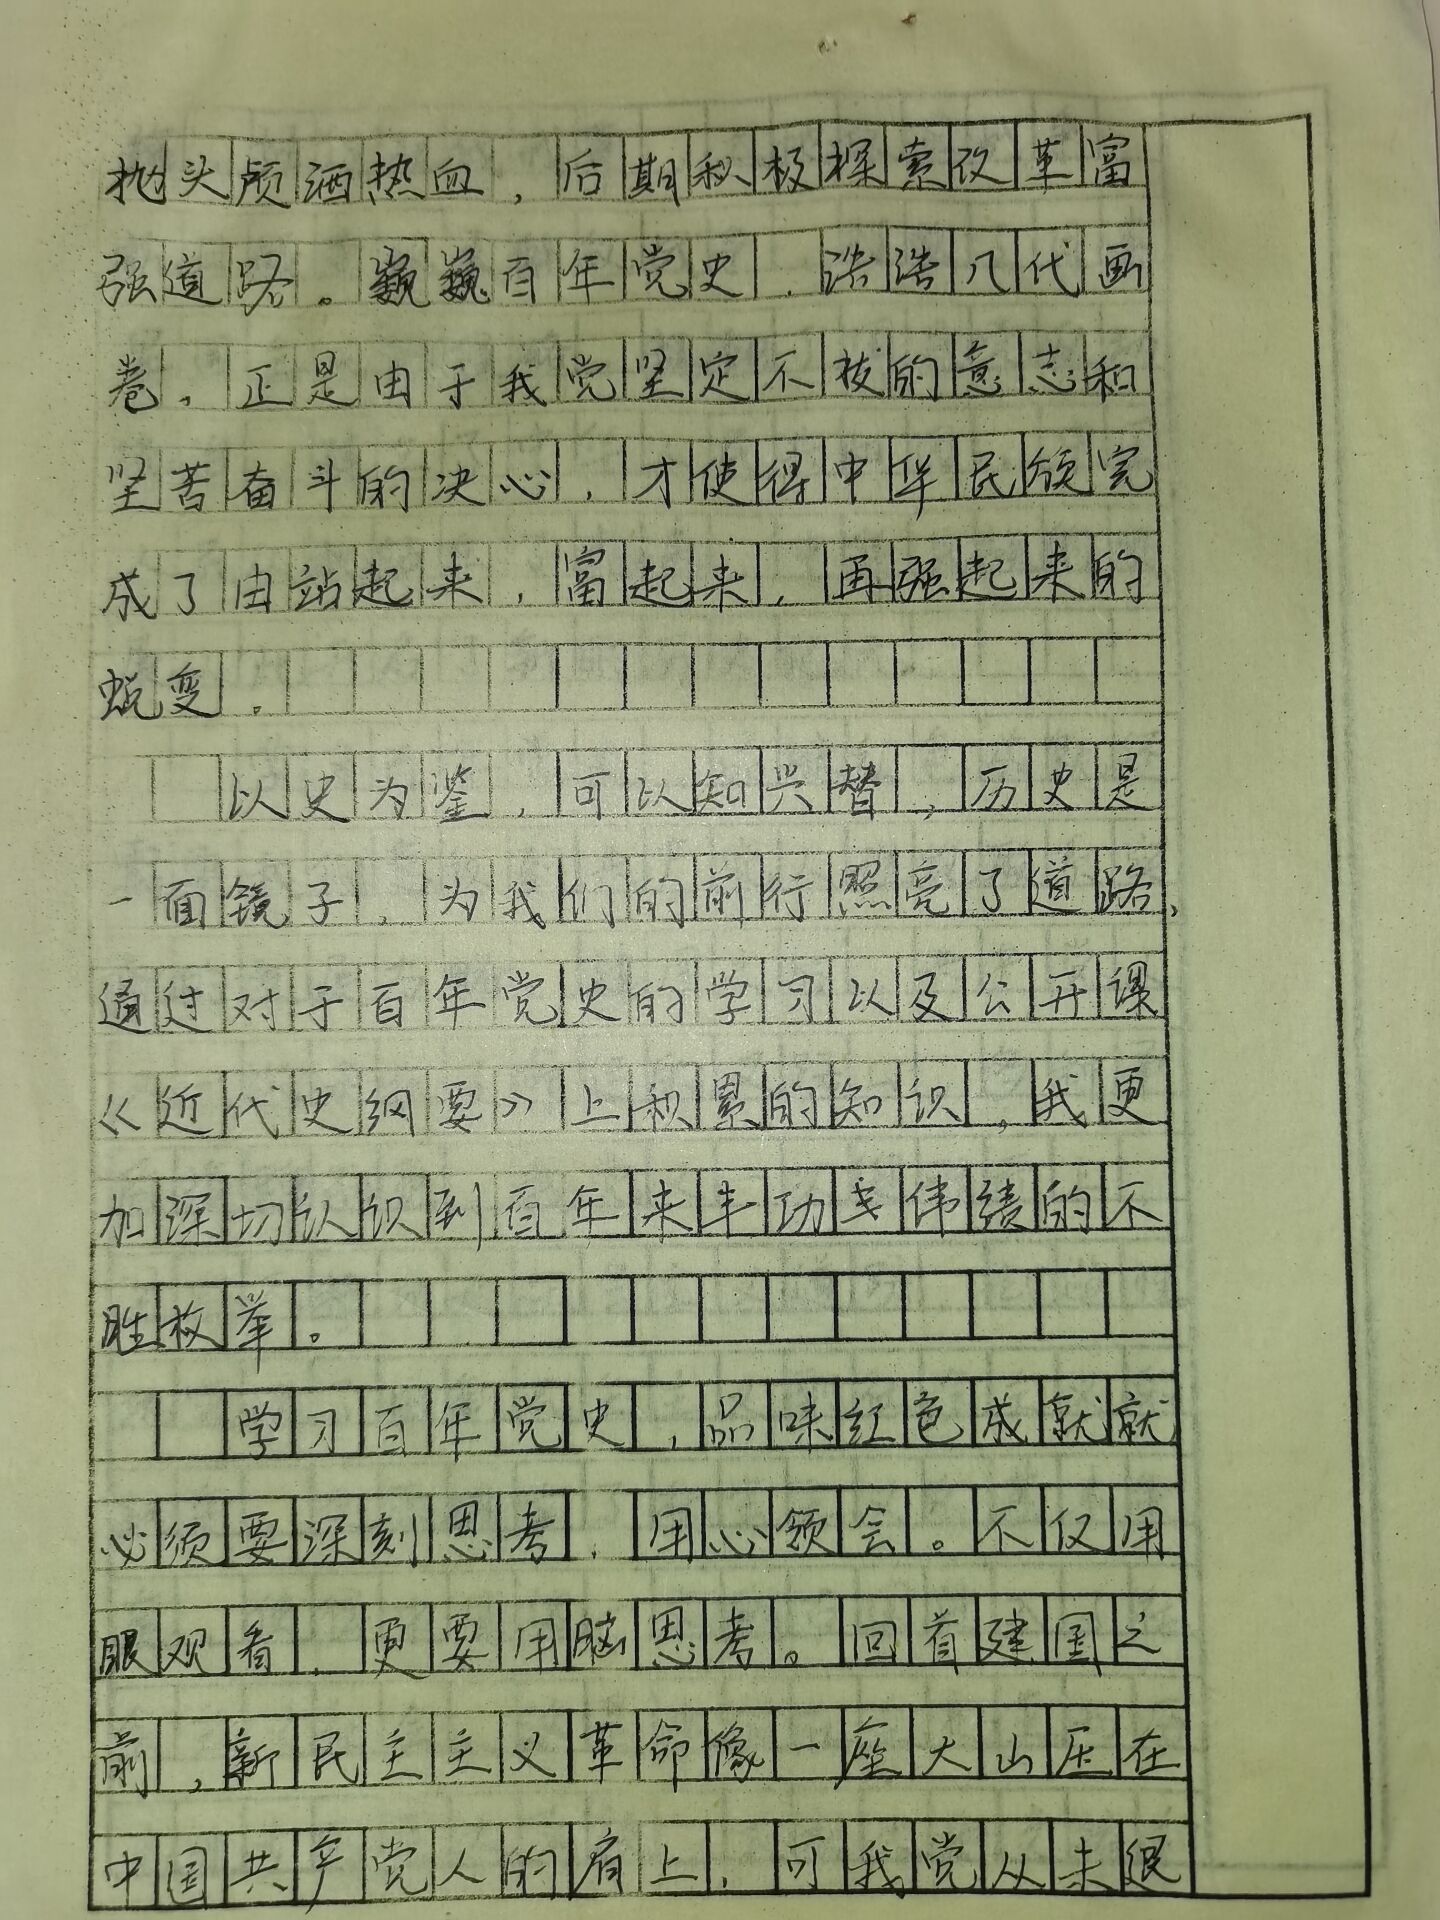 抛头颅洒热血，后期积极探索改革富
强道路。巍巍百年党史，浩浩几代画
卷，正是由于我党坚定不拔的意志和
坚苦奋斗的决心，才使得中华民领完
成了由站起来，富起来，再强起来的
蜕变。
以史为鉴，可以知兴替，历史是
一面镜子，为我们的前行照亮了道路，
通过对于百年党史的学习以及公开课
《近代史纲要》上积累的知识，我更
加深切认识到百年来丰功伟绩的不
胜枚举。
学习百年党史，品味红色成就就
必须要深刻思考，用心领会。不仅用
眼观看，更要用脑思考。回首建国之
前，新民主主义革命像一座大山压在
中国共产党人的肩上，可我党从未退